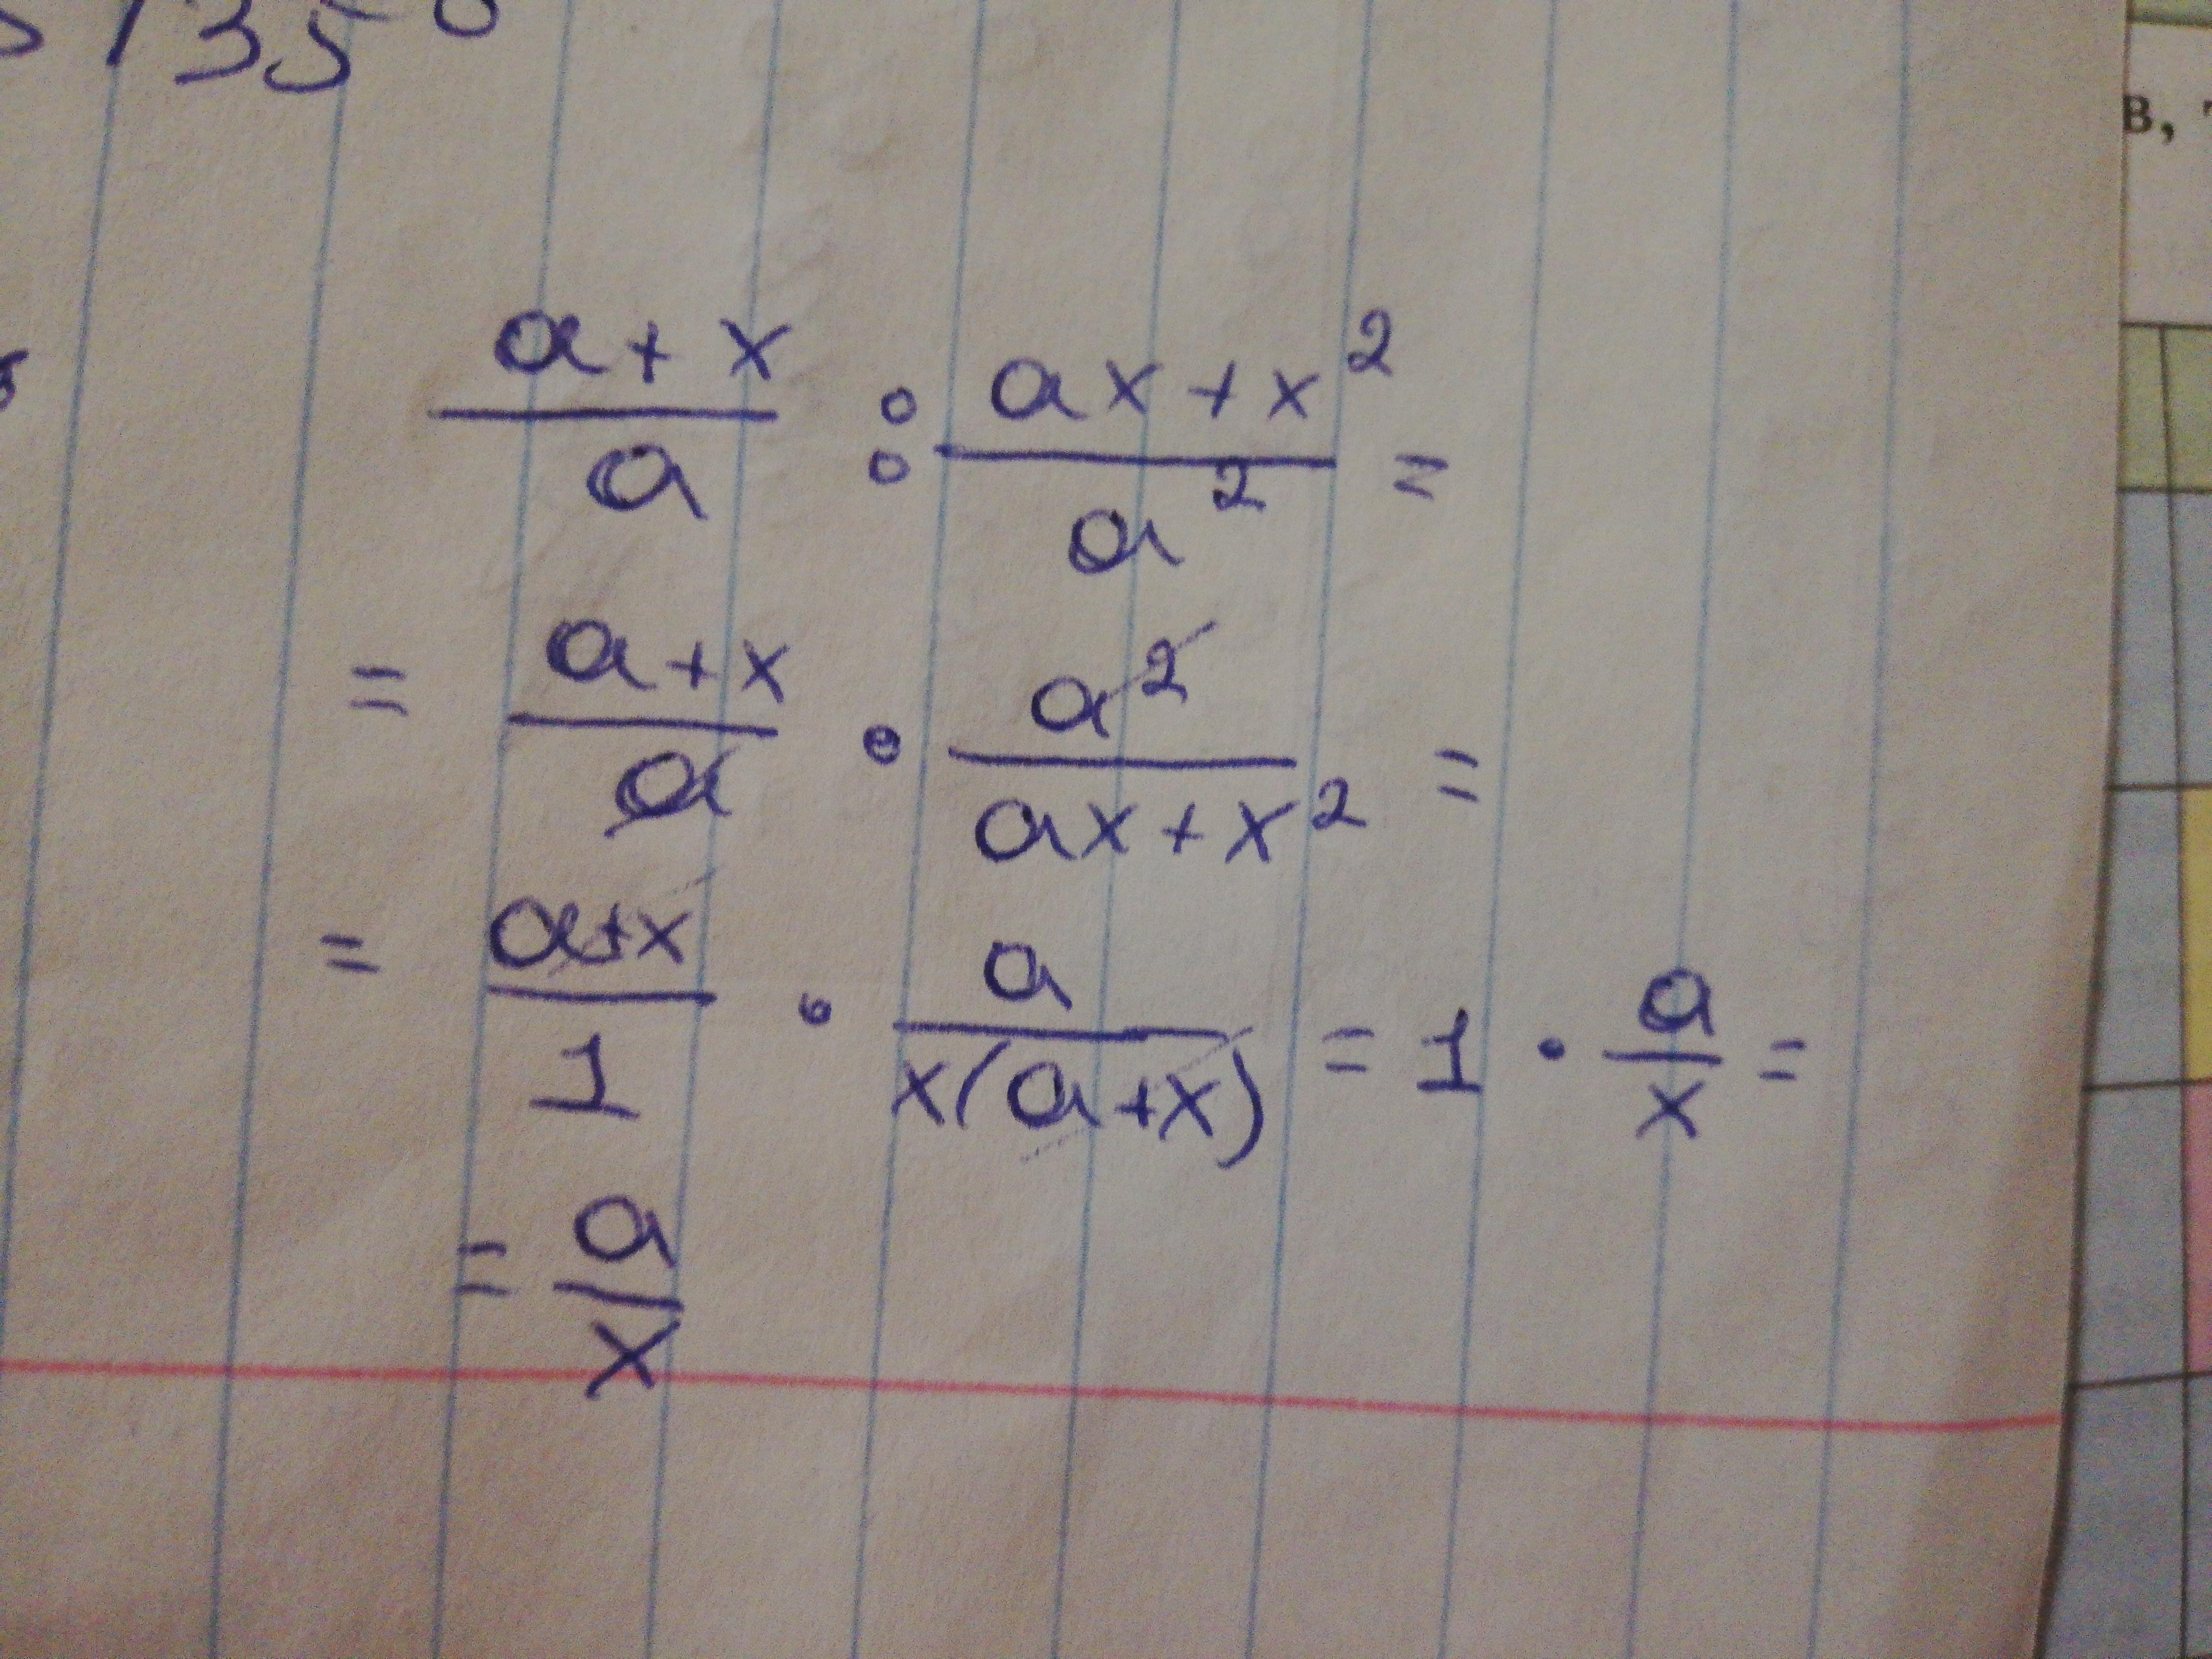 135°
a + x / a : ax + x² / a² =
= a + x / a · a² / ax + x² =
= a+x / 1 · a / x(a+x) = 1 · a / x =
= a / x
в,